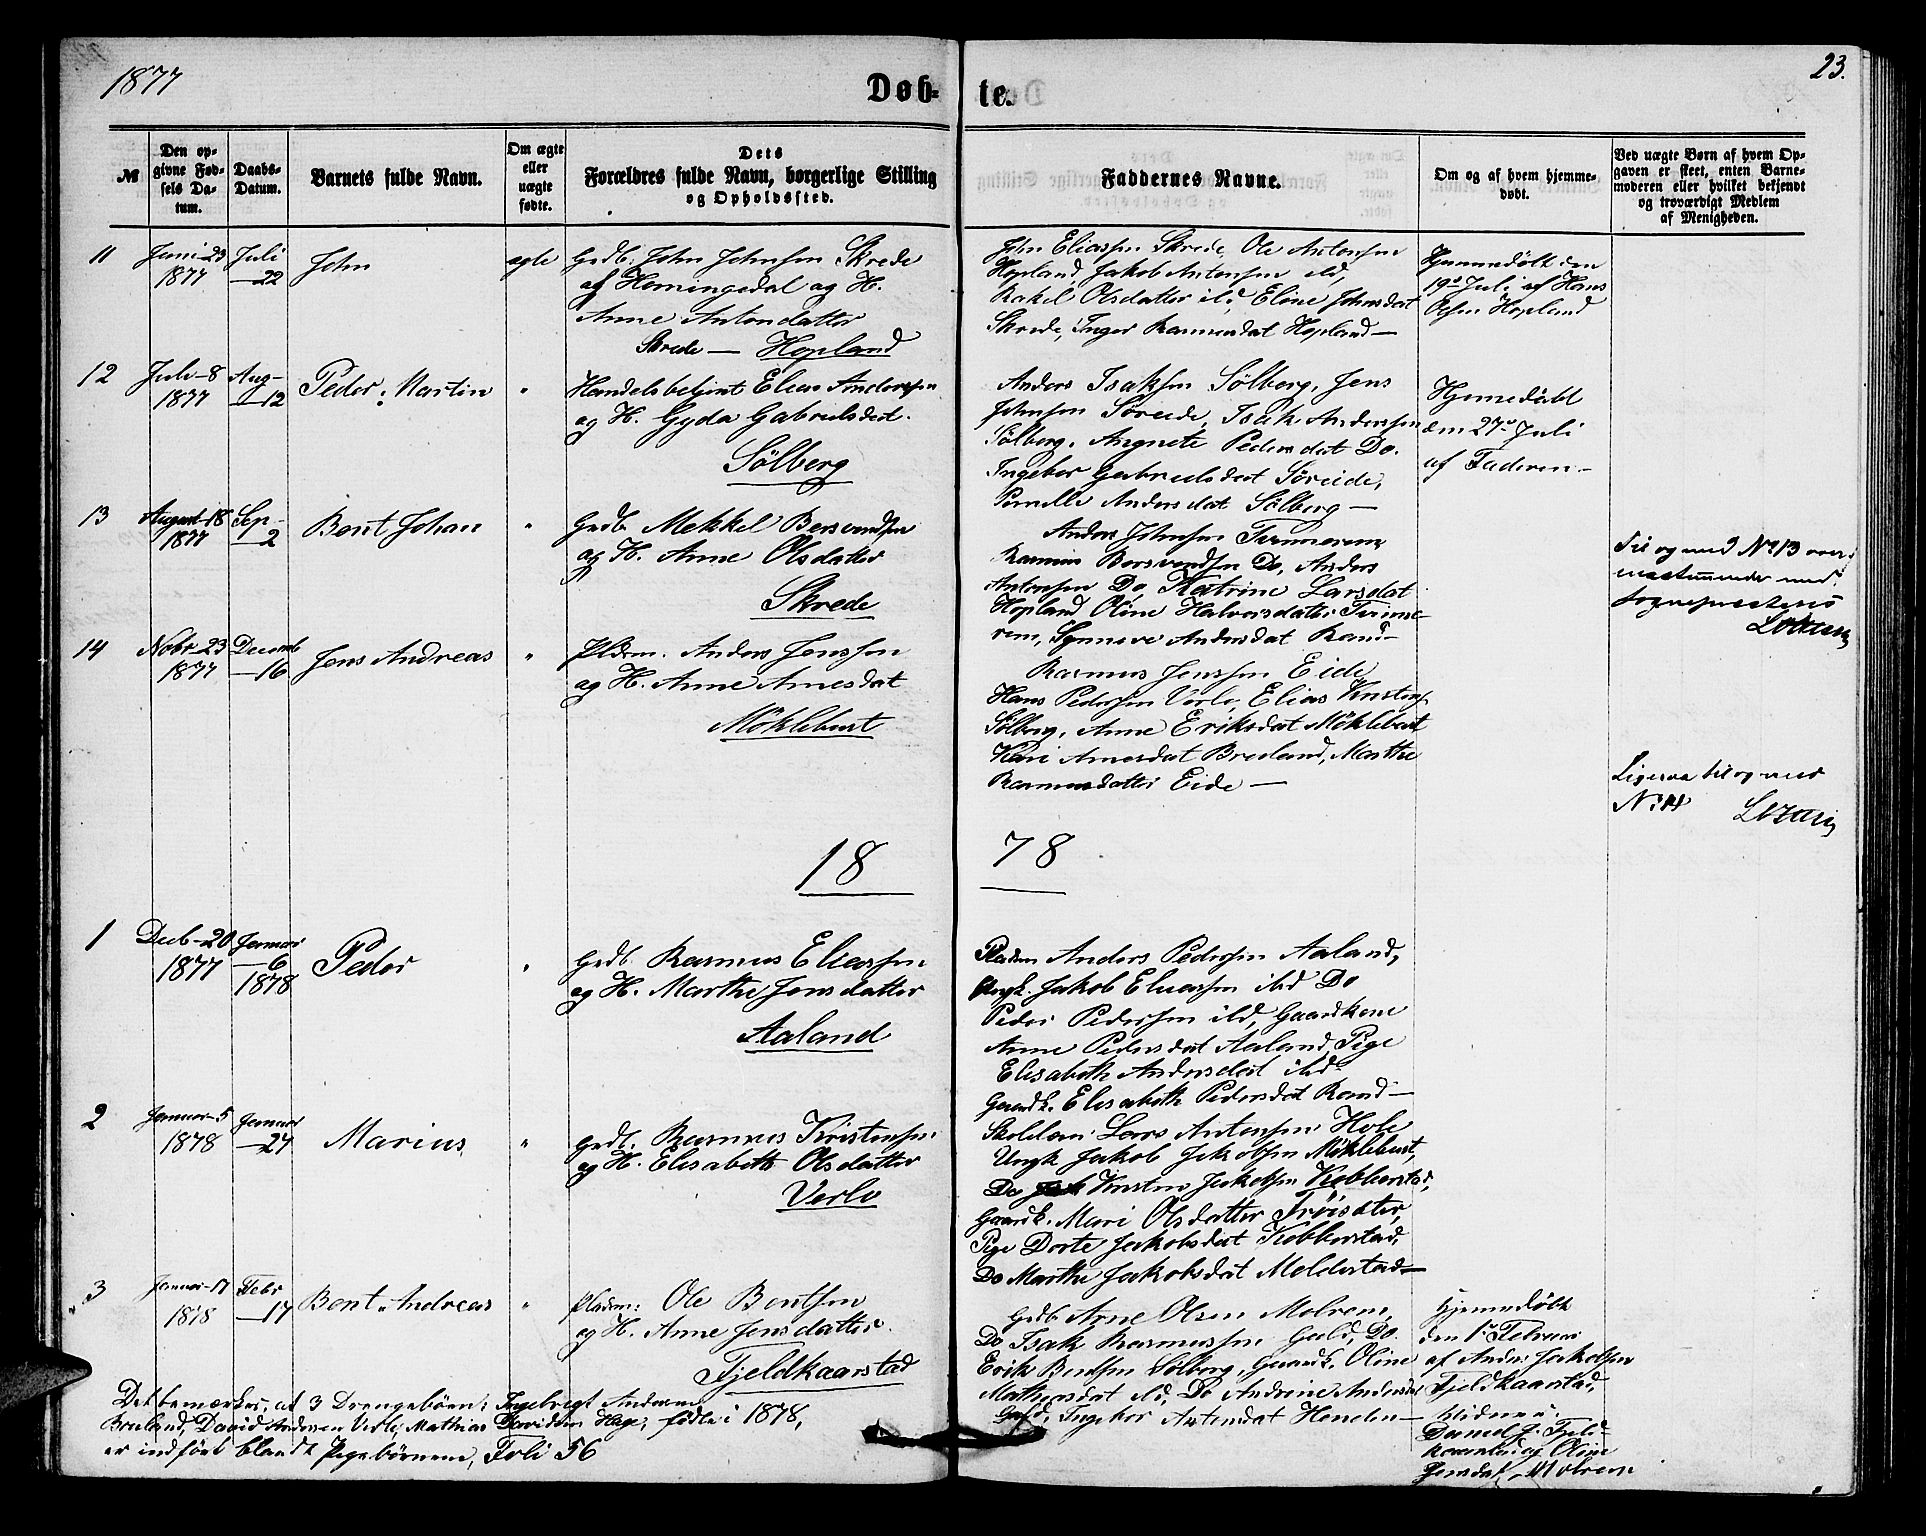 1877
Døb-
te.
23.
№
Den op-
givne Fød-
sels Da-
tum.
Daabs-
Datum.
Barnets fulde Navn.
Om ægte
eller
uægte
fødte.
Dets
Forældres fulde Navn, borgerlige Stilling
og Opholdssted.
Faddernes Navne.
Om og af hvem hjemme-
døbt.
Ved uægte Børn af hvem Op-
gaven er skeet, enten Barne-
moderen eller hvilket bekjendt
og troværdigt Medlem
af Menigheden.
11
Juni-23
1877
Juli
—22
John
ægte
Grdb. John Johnsen Skrede
af Horningdal og H.
Anne Antondatter
Skrede — Hopland
John Eliassen Skrede, Ole Antonsen
Hopland, Jakob Antonsen ibd,
Rakel Olsdatter ibd Eline Johnsdat
Skrede, Inger Rasmusdat Hopland—
Hjemmedøbt den
19de Juli af Hans
Olsen Hopland
12
Juli-8
1877
Aug-
—12
Peder Martin
"
Handelsbetjent Elias Anderssen
og H. Gyda Gabrielsdat.
Sölberg
Anders Isaksen Sölberg, Jens
Johnsen Söreide, Isak Anderssen
Sölberg, Angnete Pedersdat Do.
Ingebor Gabrielsdat Söreide,
Pernille Andersdat Sölberg —
Hjemedöbt
den 27de Juli
af Faderen—
13
August-18
1877
Sep-
—2
Bent Johan
"
Grdb. Mekkel Bersvendsen
og H. Anne Olsdatter
Skrede
Anders Johnsen Tvinnerem,
Rasmus Bersvendsen Do, Anders
Antonsen Do, Katrine Larsdat
Hopland Oline Halvorsdatter Tvinne-
rem, Synneve Andersdat Rand—
Til og med No 13 over-
eensstemmende med
Sognepræstens
14
Nobr-23
1877
Decemb
—16
Jens Andreas
"
Pldsm. Anders Jenssen
og H. Anne Arnesdat
Möklebust
Rasmus Jenssen Eide
Hans Pederssen Verlo, Elias Kristens.
Sölberg, Anne Eriksdat Möklebust
Kari Arnesdat Breiland, Marthe
Rasmusdatter Eide —
Ligesaa til og med
No 14
18
78
1
Decb-20
1877
Januari
—6
1878
Peder
"
Grdb. Rasmus Eliassen
og H. Marthe Jensdatter
Aaland
Pladsm Anders Pedersen Aaland,
Ungk. Jakob Eliassen ibd Do
Peder Pedersen ibd, Gaardkone
Anne Pedersdat Aaland Pige
Elisabeth Andersdat ibd
Gaardk. Elisabeth Pedersdat Rand—
2
Januar-5
1878
Januari
—27
Marius
"
Grdb. Rasmus Kristensen
og H. Elisabeth Olsdatter
Verlo
Skolelær. Lars Antonsen Hole
Ungk Jakob Jakobsen Möklebust,
Do Kristen Jakobsen Kobberstad,
Gaardk. Mari Olsdatter Tröisæter,
Pige Dorte Jakobsdat Kobberstad,
Do Marthe Jakobsdat Meldestad—
3
Januar-17
1878
Febr
—17
Bent Andreas
"
Pladsm: Ole Bentsen
og H. Anne Jensdatter
Fjeldkaarstad
Grdb Arne Olsen Molrem,
Do Isak Rasmussen Guld, Do
Erik Bentsen Sölberg, Gaardk. Oline
Mathiasdat ibd, Do Andrine Andersdat
Guld, Ingebor Antondat Henden—
Hjemmedöbt
den 1ste Februar
af Anders Jakobsen
Fjeldkaarstad,
Vidner:
Daniel J. Fjeld-
kaarstad og Oline
Jensdat, Molrem
Det bemærkes, at 3 Drengebörn: Ingebrigt Andersen
Breiland, David Andersen Verlo, Mathias Davidsen Hage, födte i 1878,
er indfört blandt Pigebörnene, Foli 56